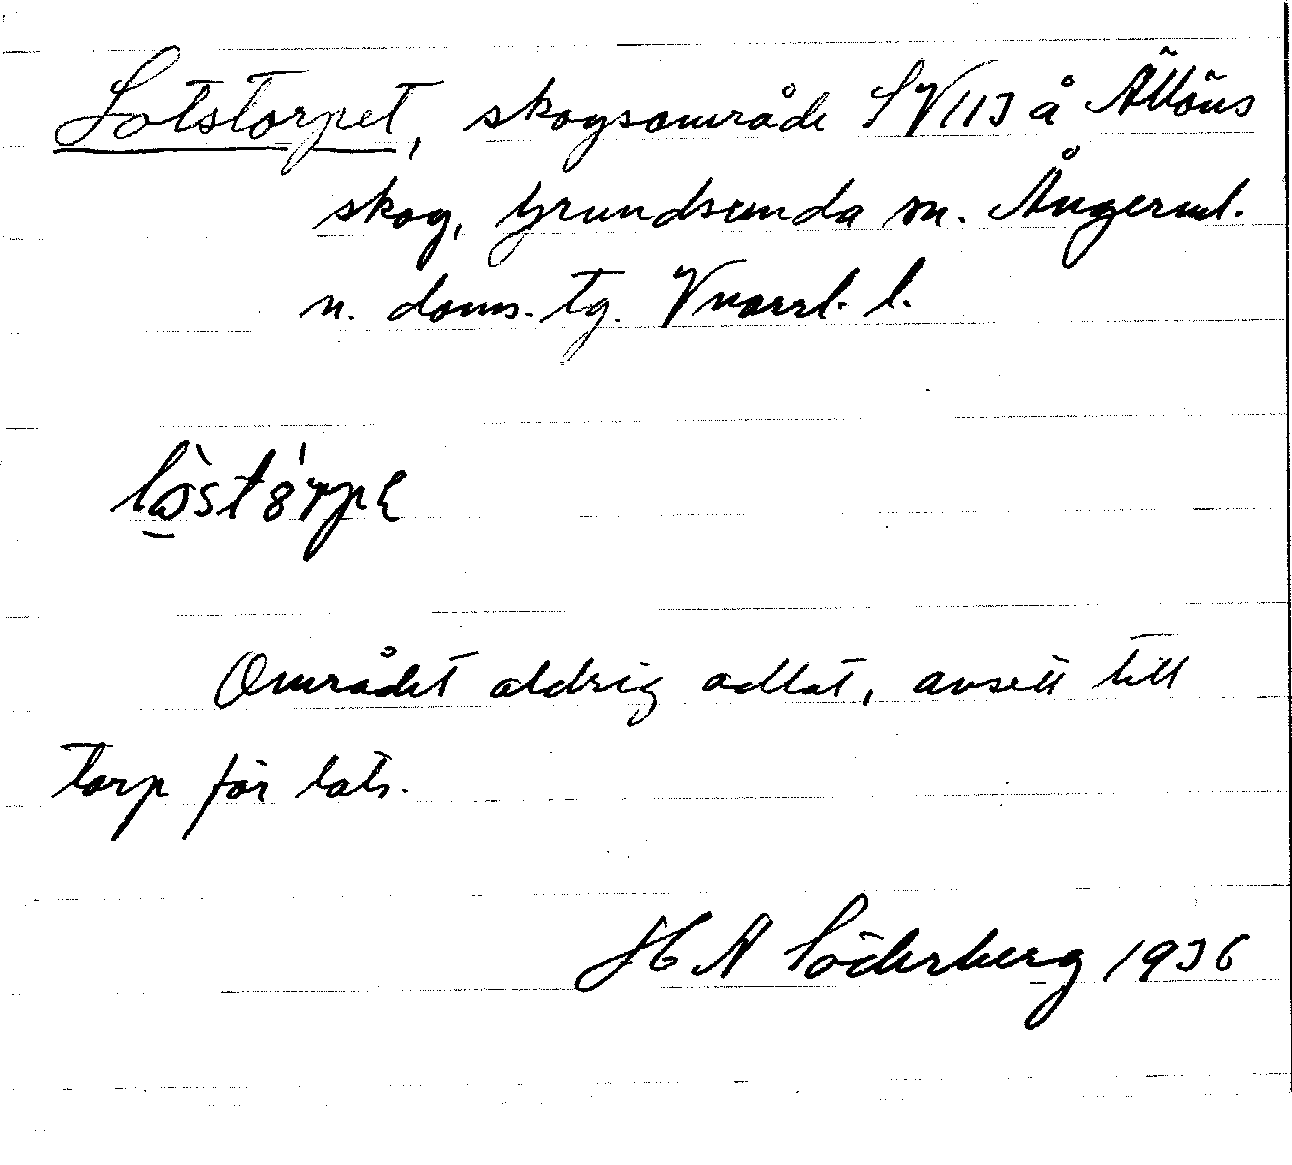 Lotstorpet, skogsområde SV113 å Ällöns
skog, Grundsunda sn. Ångerml.
n. doms. tg. Vnorrl. l.
Området aldrig odlat, avsett till
torp för lots.
H A Söderberg 1936